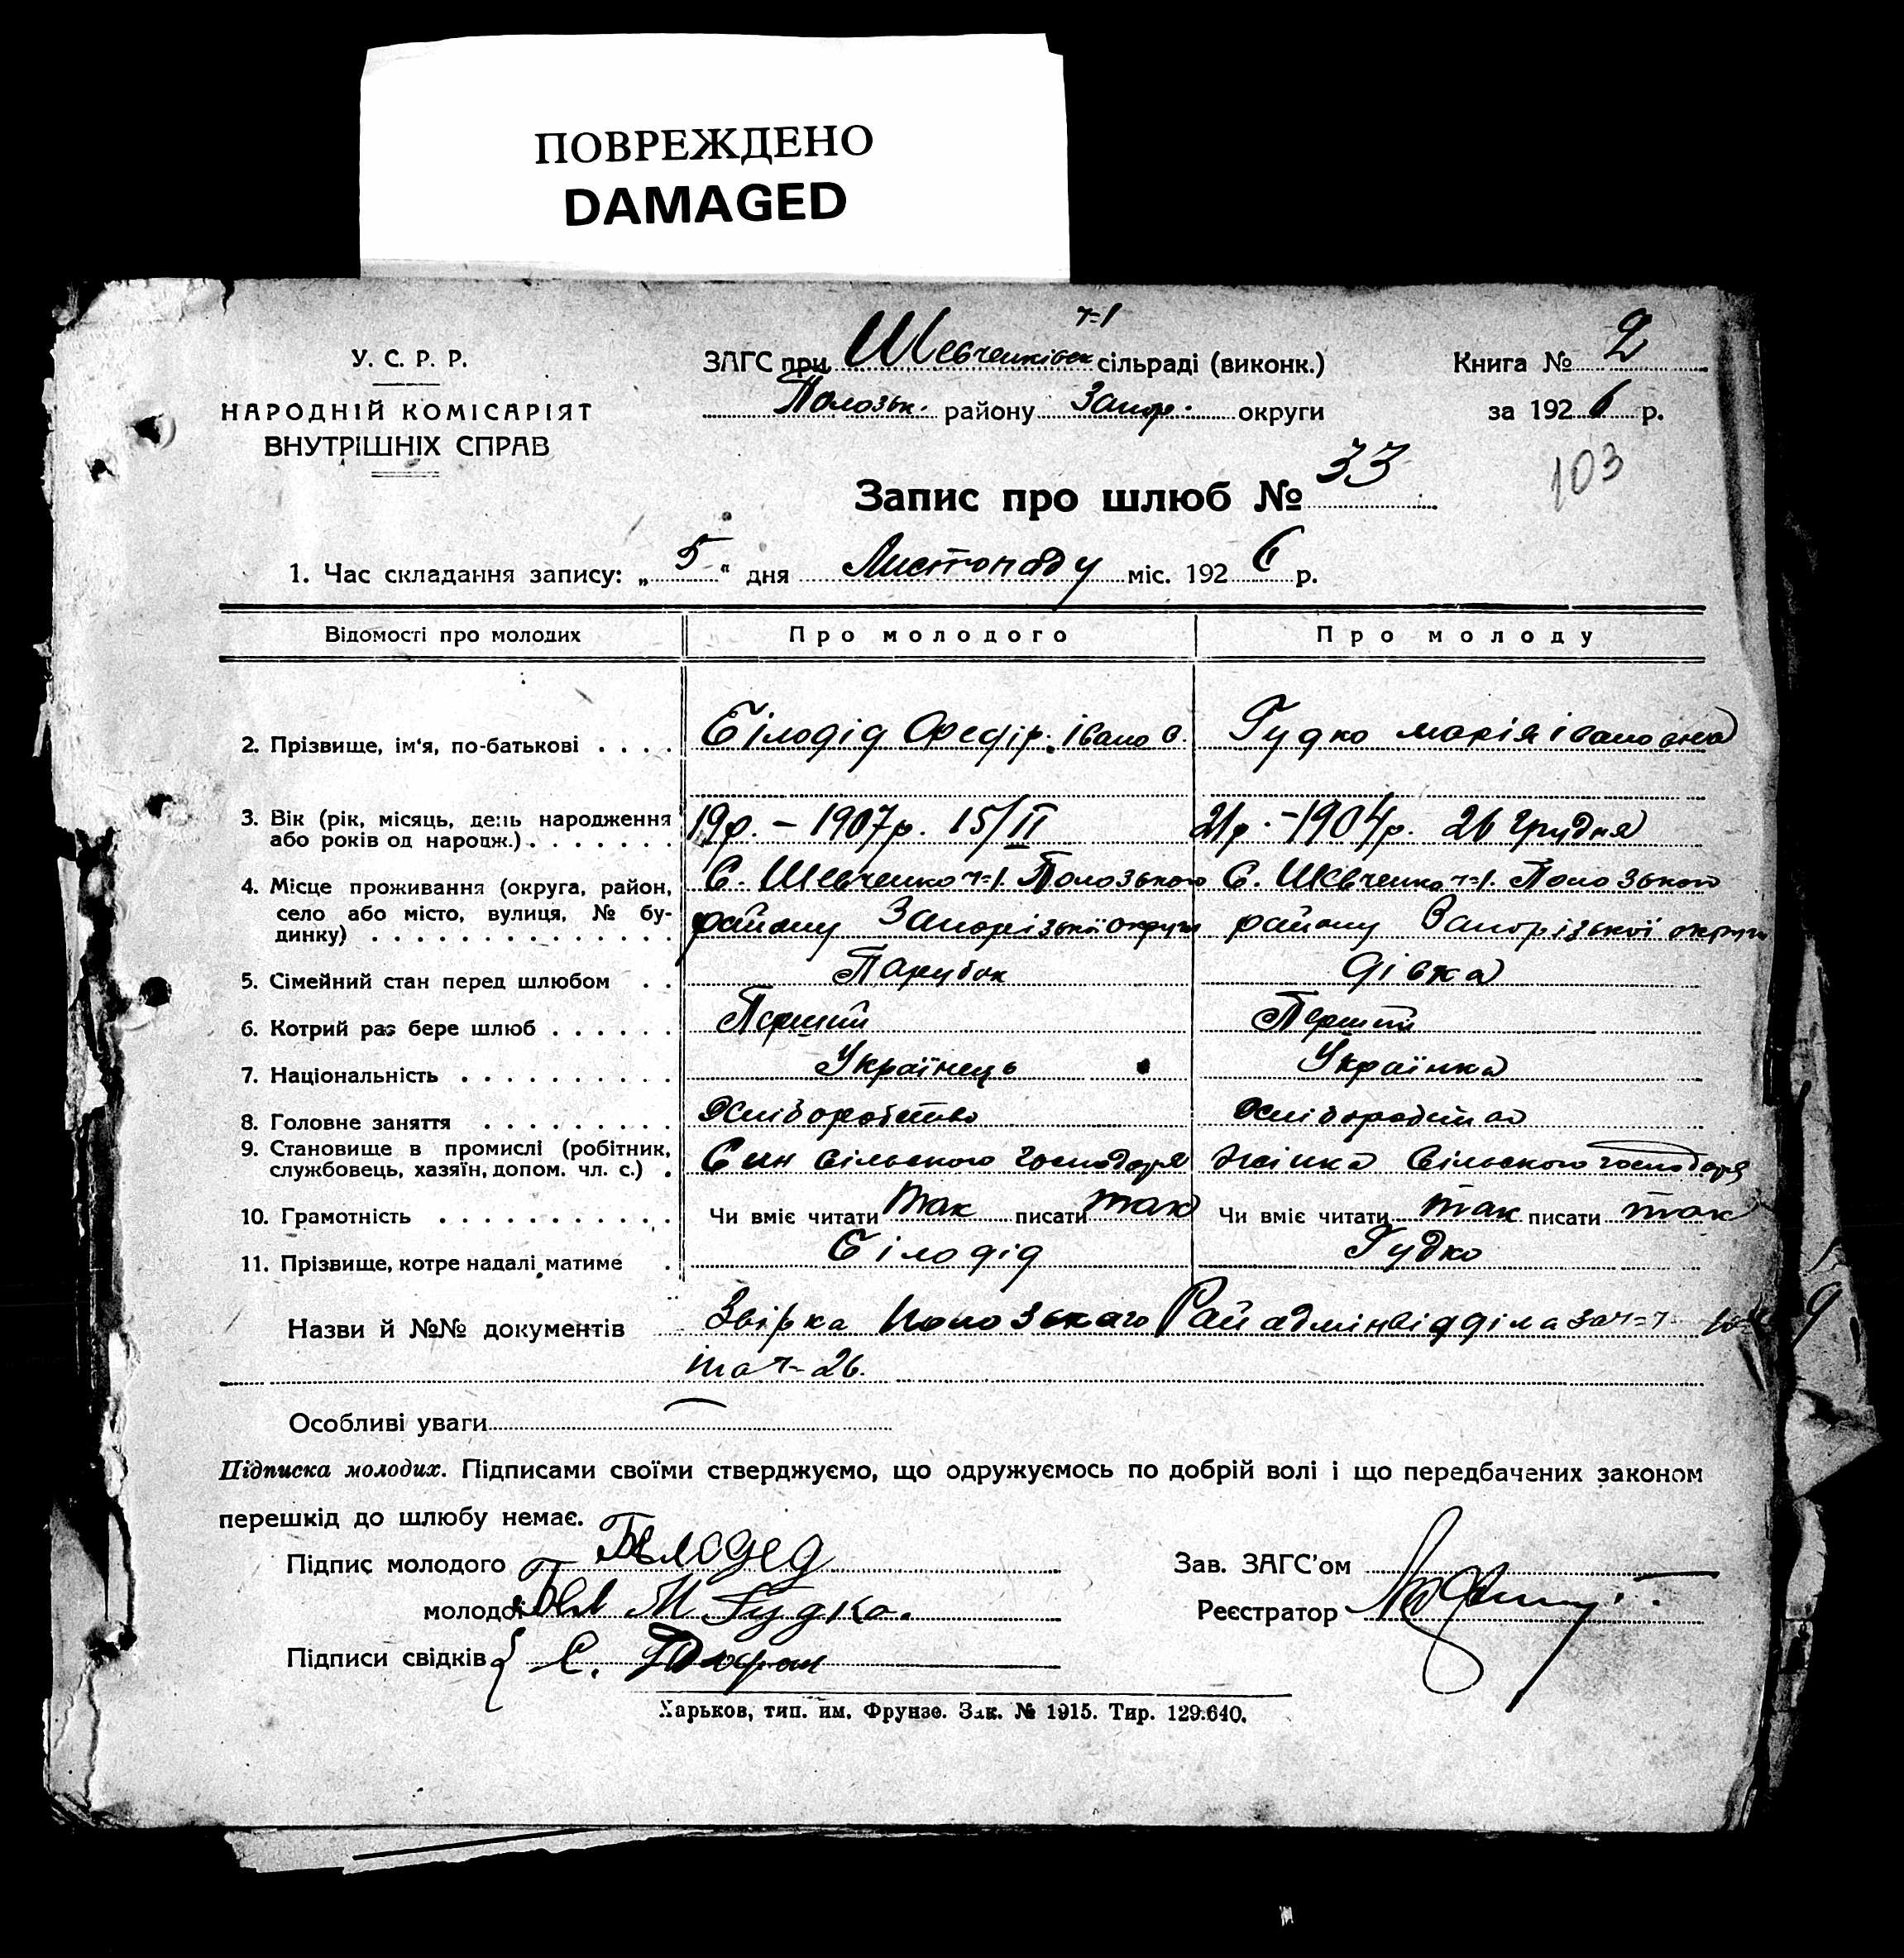 ПОВРЕЖДЕНО
DAMAGED
У. С. Р. Р.
НАРОДНІЙ КОМІСАРІЯТ
ВНУТРІШНІХ СПРАВ
ЗАГС при Шевченківск ч-1 сільраді (виконк.)
Полозьк. району Запор. округи
Книга № 2
за 1926 р.
103
Запис про шлюб № 33
1. Час складання запису: „5“ дня Листопаду міс. 1926 р.
Відомості про молодих Про молодого Про молоду
2. Прізвище, ім'я, по-батькові . . . . Білодід Федір. Івано в. Гудко Марія Івановна
3. Вік (рік, місяць, день народження або років од народж.) . . . . . . . 19р. – 1907р. 15/II 21р. – 1904р. 26 Грудня
4. Місце проживання (округа, район, село або місто, вулиця, № будинку) . . . . . . . . . . . . . . С. Шевченко ч-1. Полозького району Запорізької округи С. Шевченко ч-1. Полозького району Запорізької округи
5. Сімейний стан перед шлюбом . . Парубок дівка
6. Котрий раз бере шлюб . . . . . . Перший Перший
7. Національність . . . . . . . . . . Українець Українка
8. Головне заняття . . . . . . . . . Хліборобство Хліборобство
9. Становище в промислі (робітник, службовець, хазяїн, допом. чл. с.) . Син сільского господаря жінка сільского господаря
10. Грамотність . . . . . . . . . . . Чи вміє читати так писати так Чи вміє читати так писати так
11. Прізвище, котре надалі матиме . Білодід Гудко
Назви й №№ документів Звірка Полозького Райадмінвідділа за ч-
та ч- 26.
Особливі уваги
Підписка молодих. Підписами своїми стверджуємо, що одружуємось по добрій волі і що передбачених законом
перешкід до шлюбу немає.
Підпис молодого Белодед
молодої М Гудко.
Підписи свідків С.
Зав. ЗАГС'ом
Реєстратор
Харьков, тип. им. Фрунзе. Зак. № 1915. Тир. 129.640.